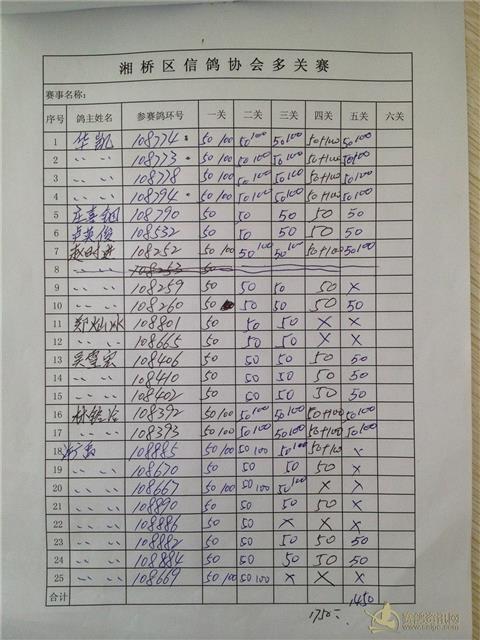 湘桥区信鸽协会多关赛
赛事名称:
序号 鸽主姓名 参赛鸽环号 一关 二关 三关 四关 五关 六关
1 华凯 108774 50 100 50 100 50 100 50+100 50 100
2 〃 〃 108773 50 100 50 100 50 100 50+100 50 100
3 〃 〃 108778 50 100 50 100 50 100 50+100 50 100
4 〃 〃 108794 50 100 50 100 50 100 50+100 50 100
5 108790 50 50 50 50 50
6 108532 50 50 50 50 50
7 108252 50 100 50 100 50 100 50+100 50 100
8 〃 〃 108253 50
9 〃 〃 108259 50 50 50 50 ×
10 〃 〃 108260 50 50 50 50 50
11 郑灿冰 108801 50 50 50 × ×
12 〃 〃 108665 50 50 50 × ×
13 108406 50 50 50 50 50
14 〃 〃 108410 50 50 50 50 50
15 〃 〃 108402 50 50 50 50 50
16 108392 50 100 50 100 50 100 50+100 50 100
17 〃 〃 108393 50 100 50 100 50 100 50+100 50 100
18 108885 50 100 50 100 50 100 50+100 ×
19 〃 〃 108670 50 50 50 50 ×
20 〃 〃 108667 50 100 50 100 50 100 × ×
21 〃 〃 108890 50 50 50 50 ×
22 〃 〃 108886 50 50 × × ×
23 〃 〃 108882 50 50 50 50 50
24 〃 〃 108884 50 50 50 50 50
25 〃 〃 108669 50 100 50 100 × × ×
合计 1750 1450